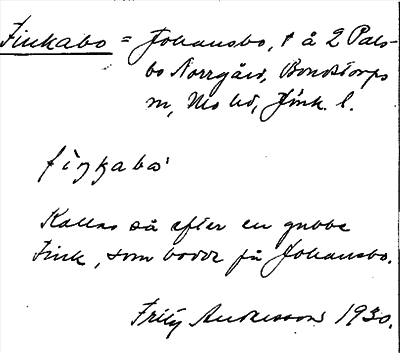 Finkabo = Johansbo, t å 2 Pals-
bo Norrgård, Bondstorps
sn, Mo hd, Jönk. l.
fiŋkabω'
Kallas så efter en gubbe
Fink, som bodde på Johansbo.
Fritz Andersson 1930.